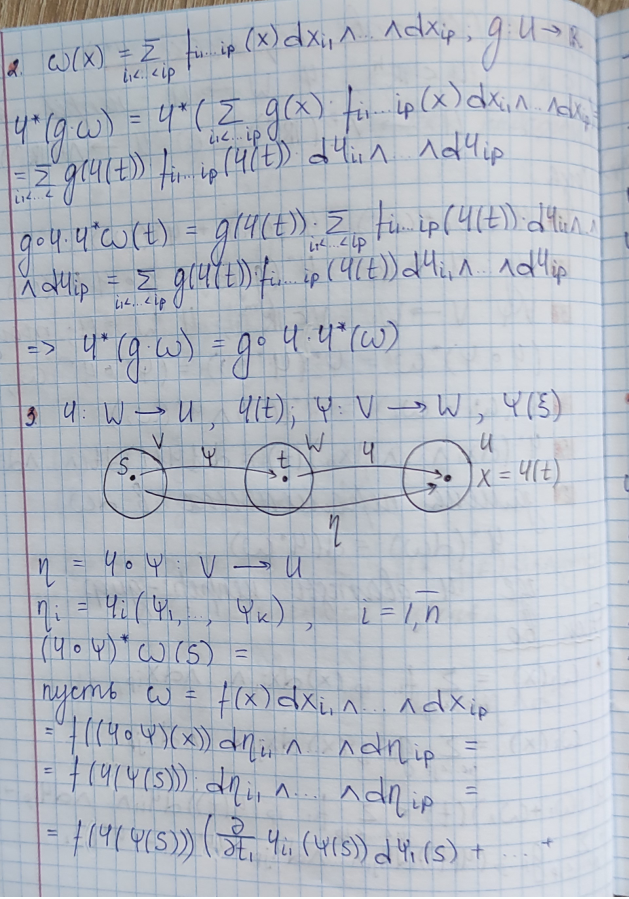 2. ω(x) = Σ_{i₁<..<ip} f_{i₁...ip}(x) dx_{i₁} ∧ .. ∧ dx_{ip} ; g: U → R
φ*(g·ω) = φ*( Σ_{i₁<..ip} g(x) · f_{i₁...ip}(x) dx_{i₁} ∧ .. ∧ dx_{ip} =
= Σ_{i₁<..<} g(φ(t)) f_{i₁...ip}(φ(t)) dφ_{i₁} ∧ .. ∧ dφ_{ip}
g∘φ·φ*ω(t) = g(φ(t)) · Σ_{i₁<..<ip} f_{i₁...ip}(φ(t)) · dφ_{i₁} ∧ ..
∧ dφ_{ip} = Σ_{i₁<..<ip} g(φ(t)) · f_{i₁...ip}(φ(t)) dφ_{i₁} ∧ .. ∧ dφ_{ip}
=> φ*(g·ω) = g∘φ·φ*(ω)
3. φ: W → U , φ(t) ; ψ: V → W , ψ(s)
V ψ W φ U
s t x = φ(t)
η
η = φ∘ψ : V → U
η_i = φ_i(ψ₁, .., ψ_k) , i = 1,n̅
(φ∘ψ)* ω(s) =
пусть ω = f(x) dx_{i₁} ∧ ... ∧ dx_{ip}
= f((φ∘ψ)(x)) dη_{i₁} ∧ .. ∧ dη_{ip} =
= f(φ(ψ(s))) · dη_{i₁} ∧ ... ∧ dη_{ip} =
= f(φ(ψ(s))) (∂/∂t₁ φ_{i₁}(ψ(s)) dψ₁(s) + ... +